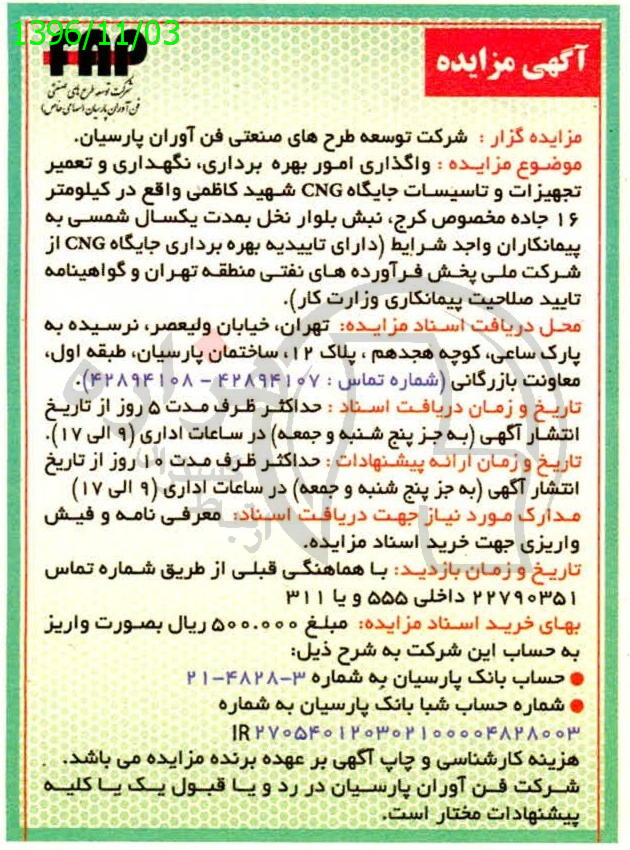 1396/11/03
آگهی مزایده
FAP
شرکت توسعه طرح های صنعتی
فن آوران پارسیان (سهامی خاص)
مزایده گزار : شرکت توسعه طرح های صنعتی فن آوران پارسیان.
موضوع مزایده : واگذاری امور بهره برداری، نگهداری و تعمیر
تجهیزات و تاسیسات جایگاه CNG شهید کاظمی واقع در کیلومتر
۱۶ جاده مخصوص کرج، نبش بلوار نخل بمدت یکسال شمسی به
پیمانکاران واجد شرایط (دارای تاییدیه بهره برداری جایگاه CNG از
شرکت ملی پخش فرآورده های نفتی منطقه تهران و گواهینامه
تایید صلاحیت پیمانکاری وزارت کار).
محل دریافت اسناد مزایده: تهران، خیابان ولیعصر، نرسیده به
پارک ساعی، کوچه هجدهم ، پلاک ۱۲، ساختمان پارسیان، طبقه اول،
معاونت بازرگانی (شماره تماس : ۴۲۸۹۴۱۰۷ - ۴۲۸۹۴۱۰۸).
تاریخ و زمان دریافت اسناد : حداکثر ظرف مدت ۵ روز از تاریخ
انتشار آگهی (به جز پنج شنبه و جمعه) در ساعات اداری (۹ الی ۱۷).
تاریخ و زمان ارائه پیشنهادات : حداکثر ظرف مدت ۱۰ روز از تاریخ
انتشار آگهی (به جز پنج شنبه و جمعه) در ساعات اداری (۹ الی ۱۷)
مدارک مورد نیاز جهت دریافت اسناد: معرفی نامه و فیش
واریزی جهت خرید اسناد مزایده.
تاریخ و زمان بازدید: با هماهنگی قبلی از طریق شماره تماس
۲۲۷۹۰۳۵۱ داخلی ۵۵۵ و یا ۳۱۱
بهای خرید اسناد مزایده: مبلغ ۵۰۰.۰۰۰ ریال بصورت واریز
به حساب این شرکت به شرح ذیل:
● حساب بانک پارسیان به شماره ۳-۴۸۲۸-۲۱
● شماره حساب شبا بانک پارسیان به شماره
IR ۲۷۰۵۴۰۱۲۰۳۰۲۱۰۰۰۰۴۸۲۸۰۰۳
هزینه کارشناسی و چاپ آگهی بر عهده برنده مزایده می باشد.
شرکت فن آوران پارسیان در رد و یا قبول یک یا کلیه
پیشنهادات مختار است.